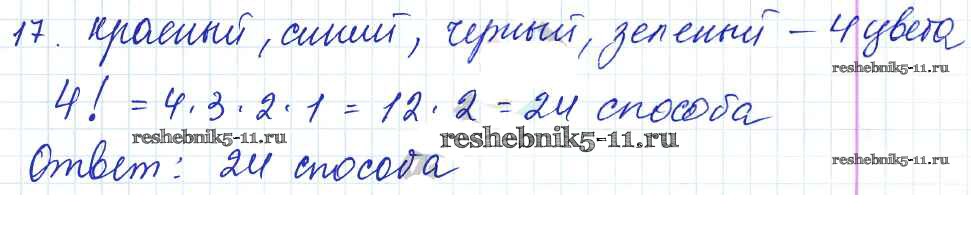 17. красный, синий, черный, зеленый – 4 цвета
reshebnik5-11.ru
4! = 4·3·2·1 = 12·2 = 24 способа
reshebnik5-11.ru
reshebnik5-11.ru
Ответ: 24 способа
reshebnik5-11.ru